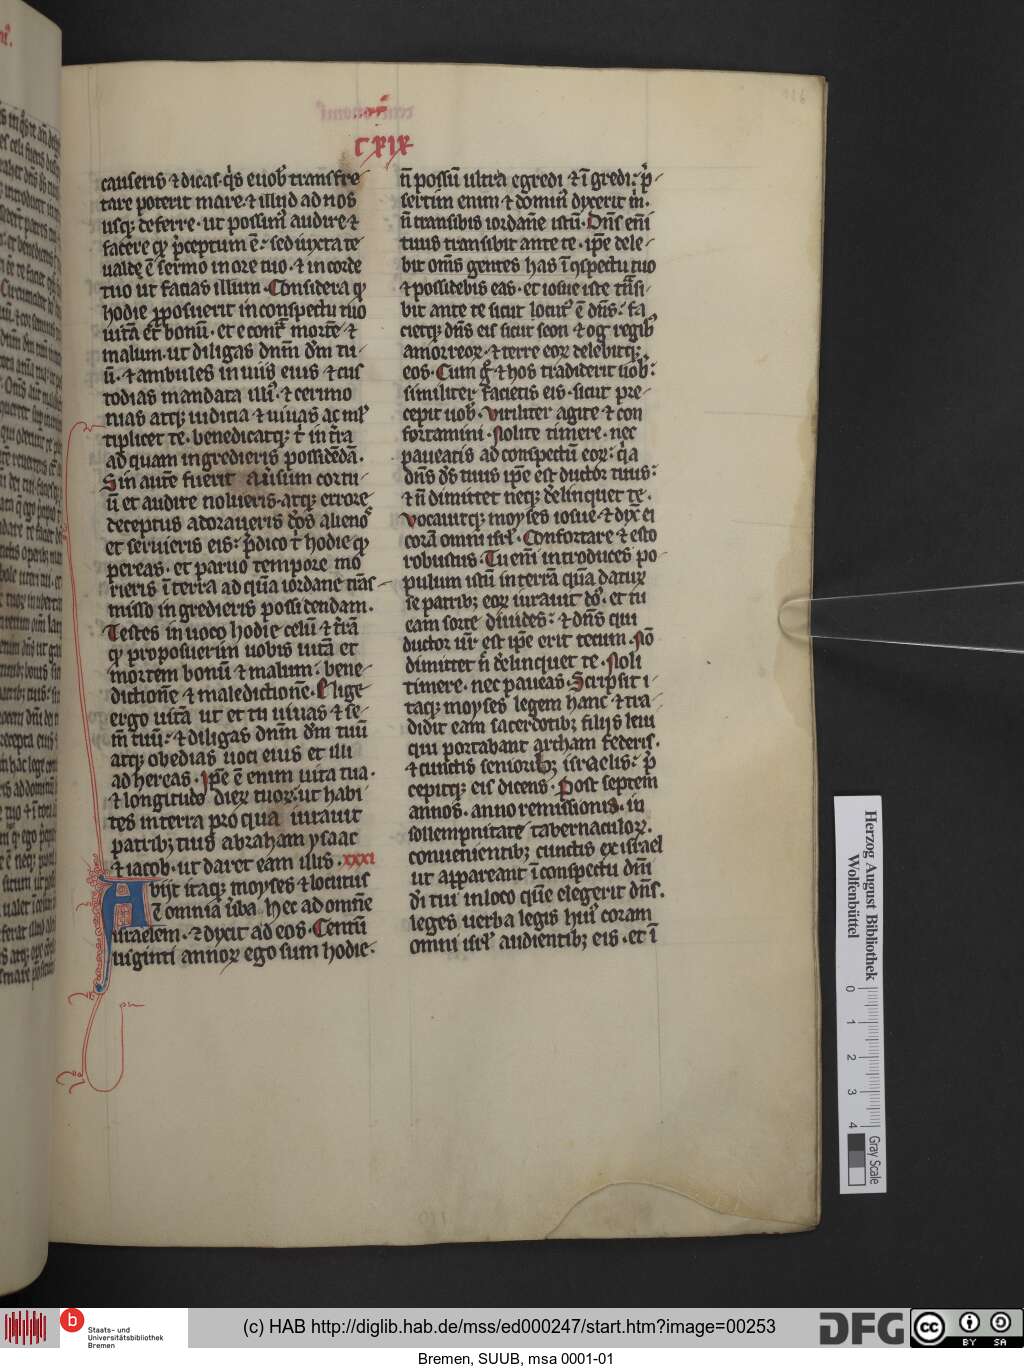 CXIX
causeris ⁊ dicas. q̇s e uob̅ transfre-
tare poterit mare. ⁊ illud ad nos
usq; deferre. ut possum̅ audire ⁊
facere qd̅ p̅ceptum ē. sed iuxta te
ualde ē sermo in ore tuo. ⁊ in corde
tuo ut facias illum. Considera qd̅
hodie p̅posuerim in conspectu tuo
uitā et bonū. et e contr̅ mortē ⁊
malum. ut diligas dnm̅ dm̅ tu-
ū. ⁊ ambules in uiis eius ⁊ cus
todias mandata illi᾽. ⁊ cerimo
nias atq; iudicia ⁊ uiuas ac ml̅
tiplicet te. benedicatq; t̅ in t̅ra
ad quam ingredieris possidēdā.
Sin autē fuerit auersum cor tu-
ū et audire nolueris. atq; errore
deceptus adoraueris d̅os alieno᾽
et seruieris eis: p̅dico t̅ hodie qd̅
pereas. et paruo tempore mo
rieris ī terra ad quā iordane t̅ns-
misso ingredieris possidendam.
Testes inuoco hodie celū ⁊ t̅rā
qd̅ proposuerim uobis uitā et
mortem bonū ⁊ malum. bene-
dictionē ⁊ maledictionē. Elige
ergo uitā ut et tu uiuas ⁊ se-
m̅ tuū: ⁊ diligas dnm̅ dm̅ tuū
atq; obedias uoci eius et illi
ad hereas. Ipse ē enim uita tua.
⁊ longitudo dieꝝ tuoꝝ. ut habi
tes in terra pro qua iurauit
patrib; tuis abraham ysaac
⁊ iacob. ut daret eam illis. XXXI
Abijt itaq; moyses ⁊ locutus
ē omnia u̅ba hec ad omnē
israelem. ⁊ dyxit ad eos. Centū
uiginti annoꝝ ego sum hodie.
n̅ possū ultra egredi ⁊ īgredi: p̅-
sertim enim ⁊ domin᾽ dyxerit m̅.
n̅ transibis iordanē istū. Dn̅s en̅i
tuus transibit ante te. ip̅e dele-
bit om̅s gentes has ī ꝯspectu tuo
⁊ possidebis eas. et iosue iste t̅nsi-
bit ante te sicut locut᾽ ē dn̅s: fa
cietq; dn̅s eis sicut seon ⁊ og regib᾽
amorreoꝝ. ⁊ terre eoꝝ delebitq;
eos. Cum g̅ ⁊ hos tradiderit uob̅:
similiter facietis eis. sicut pre-
cepit uob̅. Viriliter agite ⁊ con
fortamini. Nolite timere. nec
paueatis ad conspectū eoꝝ: q̅a
dn̅s d̅s tuus ip̅e est ductor tuus:
⁊ n̅ dimittet neq; d̅elinquet te.
Vocauitq; moyses iosue ⁊ dyx̅ ei
corā omni isrl̅. Confortare ⁊ esto
robustus. Tu en̅i introduces po-
pulum istū in terrā quā daturꝝ
se patrib; eoꝝ iurauit d̅s. et tu
eam sorte diuides: ⁊ dn̅s qui
ductor ur̅ est ip̅e erit tecum. Nō
dimittet n̅ d̅elinquet te. Noli
timere. nec paueas. Scripsit i-
taq; moyses legem hanc ⁊ tra-
didit eam sacerdotib; filijs leui
qui portabant archam federis.
⁊ cunctis seniorib; israelis: p̅
cepitq; eis dicens. Post septem
annos. anno remissionis. in
sollempnitate tabernaculoꝝ.
conuenientib; cunctis ex israel
ut appareant ī conspectu dn̅i
d̅i tui in loco quē elegerit dn̅s.
leges uerba legis hui᾽ coram
omni isrl̅ audientib; eis. et ī
Herzog August Bibliothek
Wolfenbüttel
0 1 2 3 4
Gray Scale
b
Staats- und
Universitätsbibliothek
Bremen
(c) HAB http://diglib.hab.de/mss/ed000247/start.htm?image=00253
DFG
cc BY SA
Bremen, SUUB, msa 0001-01